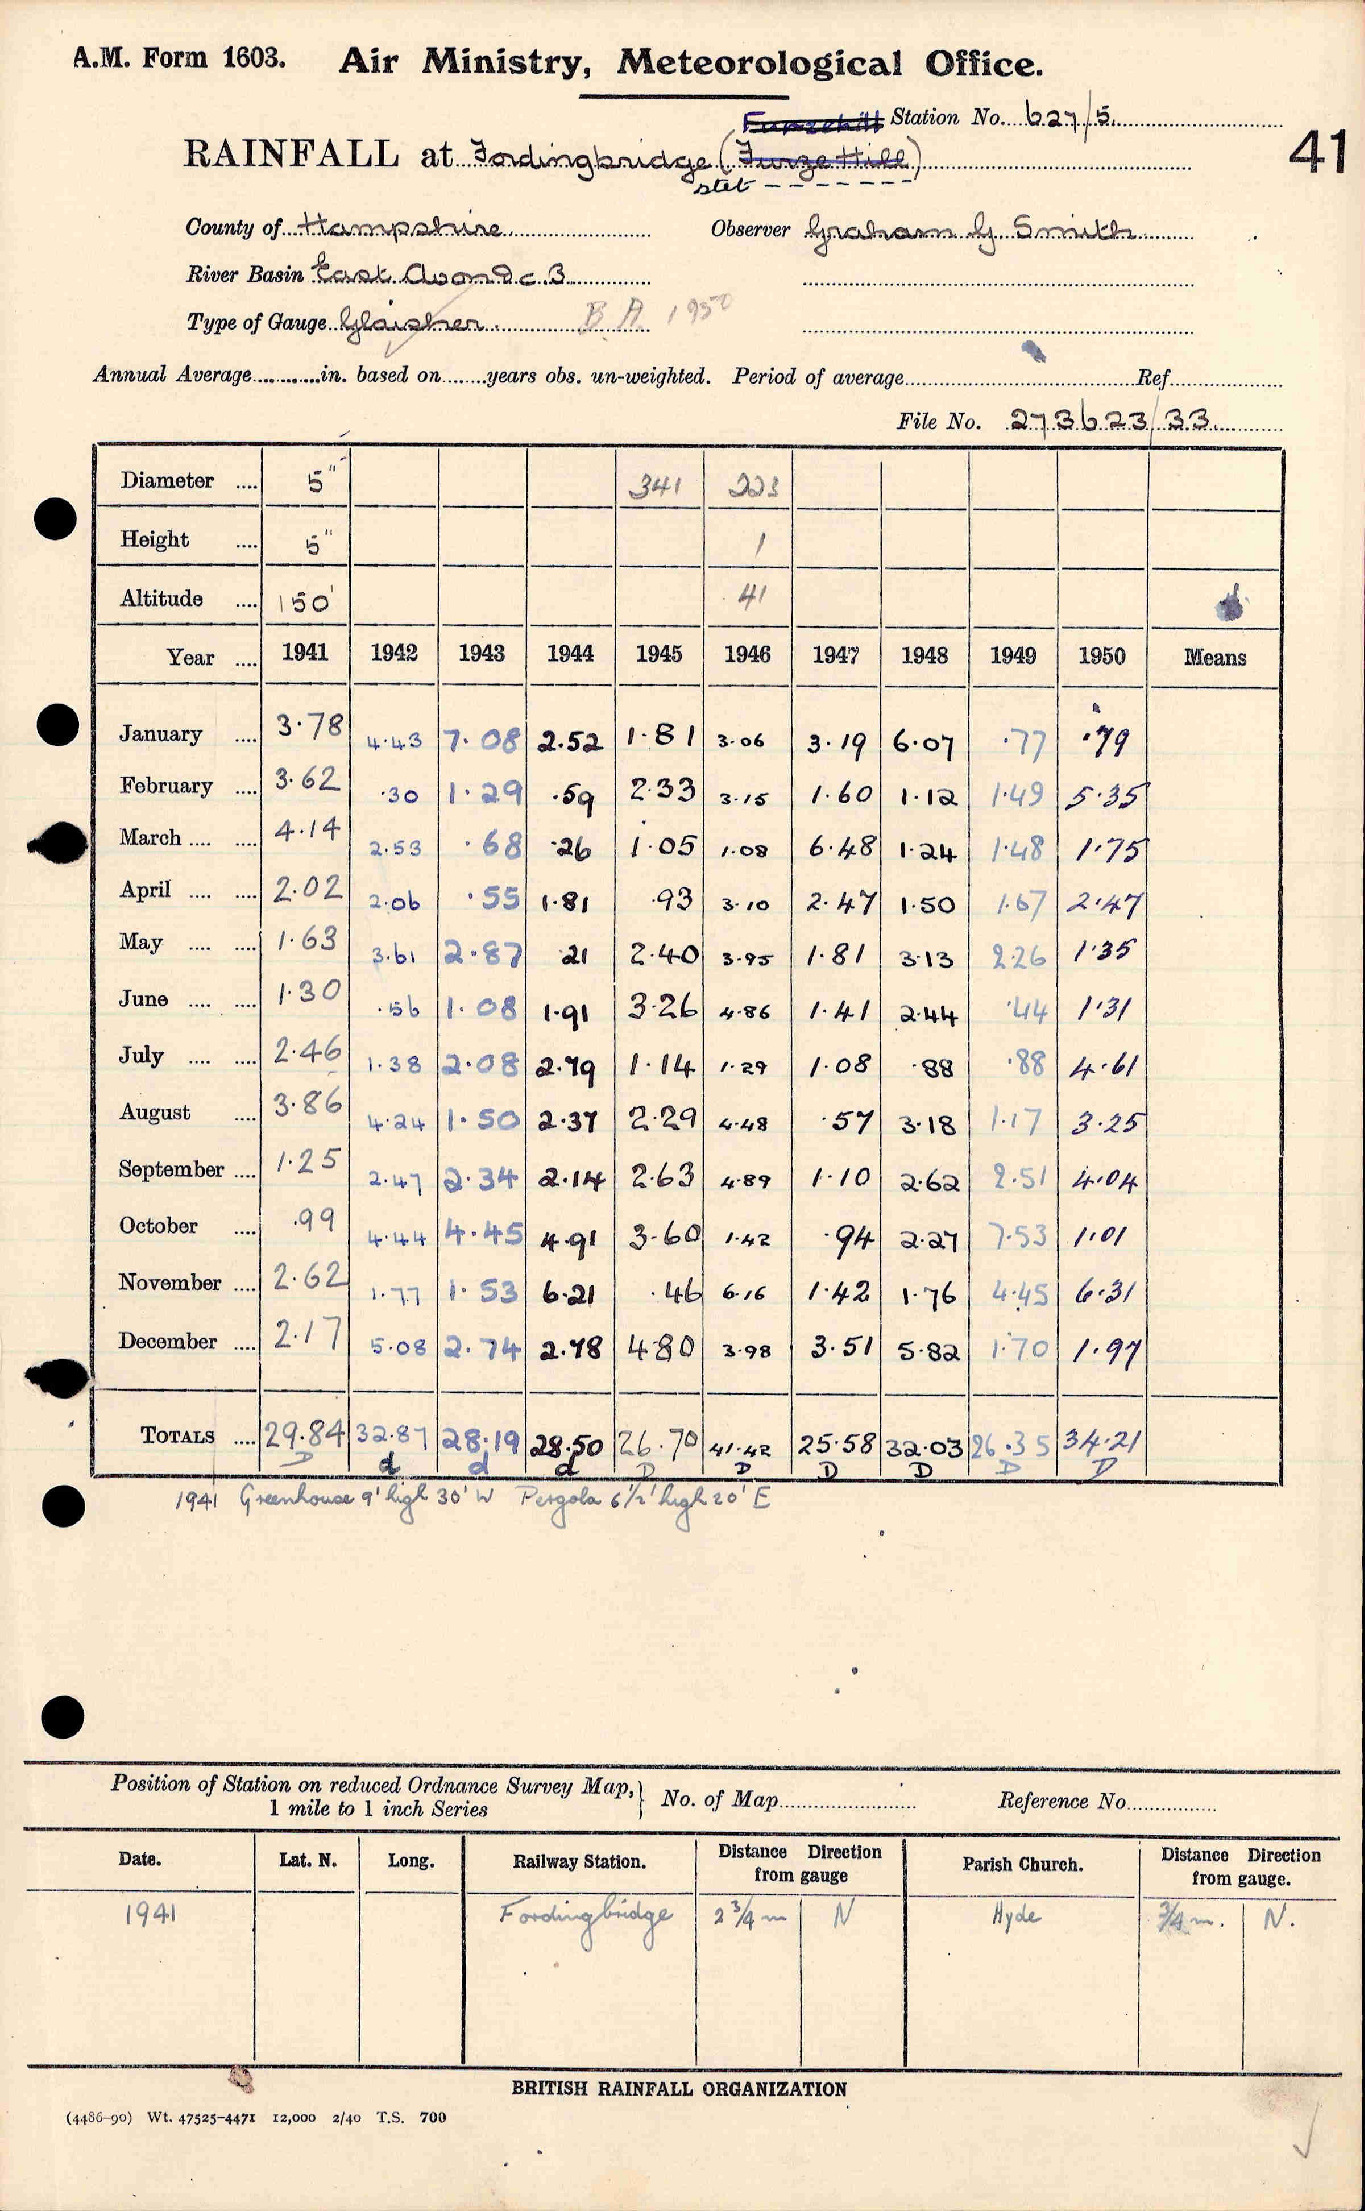 A.M. Form 1603. Air Ministry, Meteorological Office.
Furzehill Station No. 627/5
RAINFALL at Fordingbridge (Furze Hill) 41
stet
County of Hampshire Observer Graham G Smith
River Basin East Avon Dc 3
Type of Gauge Glaisher B.A. 1950
Annual Average in. based on years obs. un-weighted. Period of average Ref
File No. 273623/33
Diameter 5" 341 223
Height 5" 1
Altitude 150' 41
Year 1941 1942 1943 1944 1945 1946 1947 1948 1949 1950 Means
January 3.78 4.43 7.08 2.52 1.81 3.06 3.19 6.07 .77 .79
February 3.62 .30 1.29 .59 2.33 3.15 1.60 1.12 1.49 5.35
March 4.14 2.53 .68 .26 1.05 1.08 6.48 1.24 1.48 1.75
April 2.02 2.06 .55 1.81 .93 3.10 2.47 1.50 1.67 2.47
May 1.63 3.61 2.87 .21 2.40 3.95 1.81 3.13 2.26 1.35
June 1.30 .56 1.08 1.91 3.26 4.86 1.41 2.44 .44 1.31
July 2.46 1.38 2.08 2.79 1.14 1.29 1.08 .88 .88 4.61
August 3.86 4.24 1.50 2.37 2.29 4.48 .57 3.18 1.17 3.25
September 1.25 2.47 2.34 2.14 2.63 4.89 1.10 2.62 2.51 4.04
October .99 4.44 4.45 4.91 3.60 1.42 .94 2.27 7.53 1.01
November 2.62 1.77 1.53 6.21 .46 6.16 1.42 1.76 4.45 6.31
December 2.17 5.08 2.74 2.78 4.80 3.98 3.51 5.82 1.70 1.97
TOTALS 29.84 32.87 28.19 28.50 26.70 41.42 25.58 32.03 26.35 34.21
D d d d D D D D D D
1941 Greenhouse 9' high 30' W Pergola 6½' high 20' E
Position of Station on reduced Ordnance Survey Map, 1 mile to 1 inch Series } No. of Map Reference No.
Date. Lat. N. Long. Railway Station. Distance Direction from gauge Parish Church. Distance Direction from gauge.
1941 Fordingbridge 2 ¾ m N Hyde ¾ m. N.
BRITISH RAINFALL ORGANIZATION
(4486-90) Wt. 47525-4471 12,000 2/40 T.S. 700